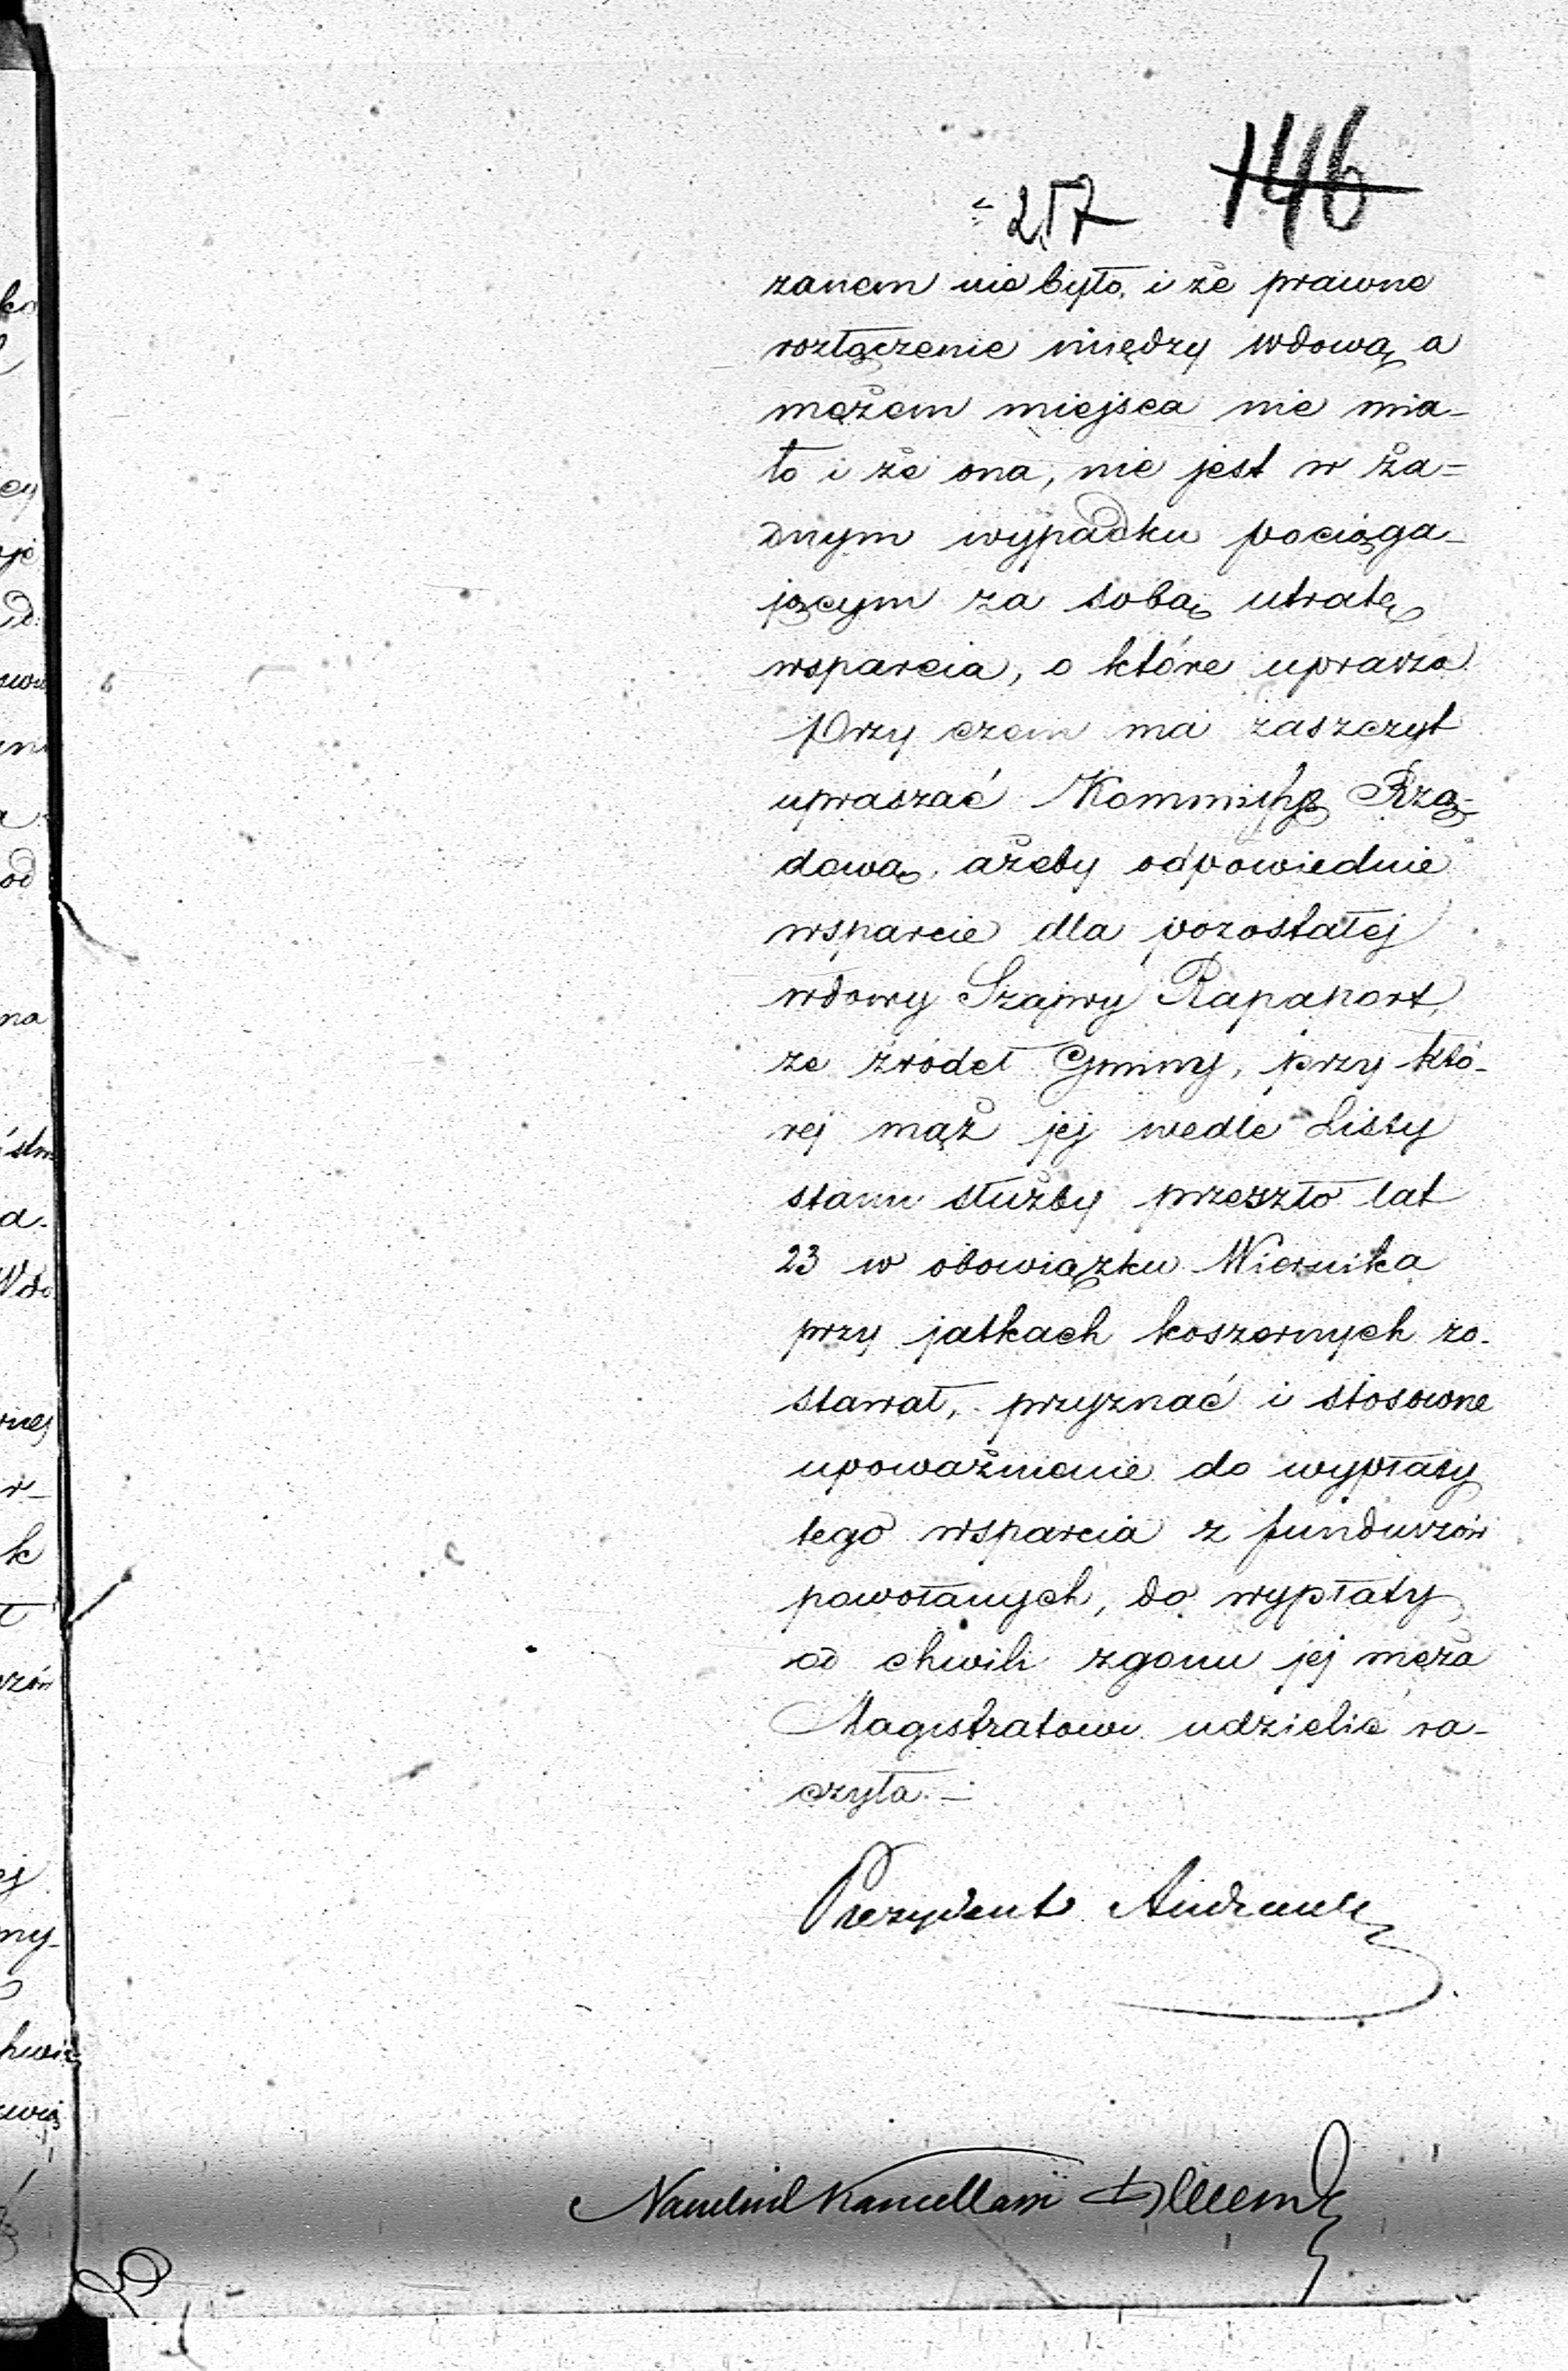 257 146
zanem nie było, i że prawne
rozłączenie między wdową a
mężem miejsca nie mia-
ło i że ona, nie jest w ża=
dnym wypadku pociąga-
jącym za sobą utratę
wsparcia, o które uprasza
Przy czem ma zaszczyt
upraszać Kommissyę Rzą-
dową, ażeby odpowiednie
wsparcie dla pozostałej
wdowy Szajwy Rapaport,
ze źródeł Gminy, przy któ-
rej mąż jej wedle Listy
stanu służby przeszło lat
23 w obowiązku Wiernika
przy jatkach koszernych zo-
stawał, przyznać i stosowne
upoważnienie do wypłaty
tego wsparcia z funduszów
powołanych, do wypłaty
od chwili zgonu jej męża
Magistratowi udzielić ra-
czyła. —
Prezydent
Naczelnik Kancellarii